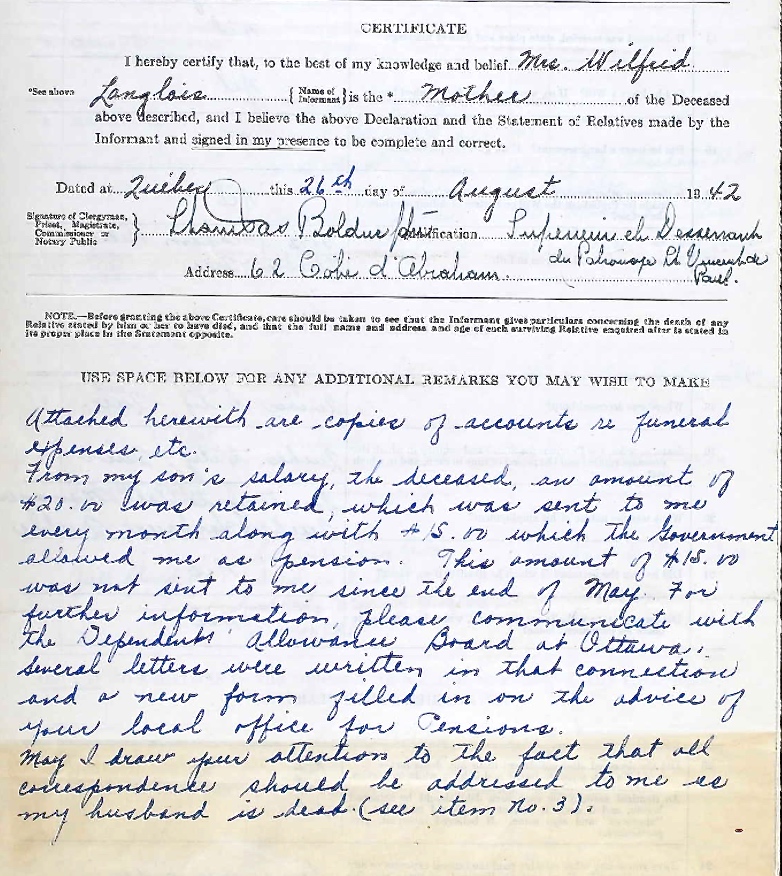 CERTIFICATE
I hereby certify that, to the best of my knowledge and belief Mrs. Wilfrid
*See above Langlois {Name of Informant} is the * Mother of the Deceased
above described, and I believe the above Declaration and the Statement of Relatives made by the
Informant and signed in my presence to be complete and correct.
Dated at Québec this 26th day of August 1942
Signature of Clergyman, Priest, Magistrate, Commissioner or Notary Public } Bolduc ptre Qualification Supérieur et Desservant
du Patronage St Vincent de
Paul.
Address 62 Côte d'Abraham.
NOTE.—Before granting the above Certificate, care should be taken to see that the Informant gives particulars concerning the death of any
Relative stated by him or her to have died, and that the full name and address and age of each surviving Relative enquired after is stated in
its proper place in the Statement opposite.
USE SPACE BELOW FOR ANY ADDITIONAL REMARKS YOU MAY WISH TO MAKE
Attached herewith are copies of accounts re funeral
expenses, etc.
From my son's salary, the deceased, an amount of
$20.00 was retained, which was sent to me
every month along with $15.00 which the Government
allowed me as pension. This amount of $15.00
was not sent to me since the end of May. For
further information, please communicate with
the Dependents' Allowance Board at Ottawa.
Several letters were written in that connection
and a new form filled in on the advice of
your local office for Pensions.
May I draw your attention to the fact that all
correspondence should be addressed to me as
my husband is dead. (see item No. 3).